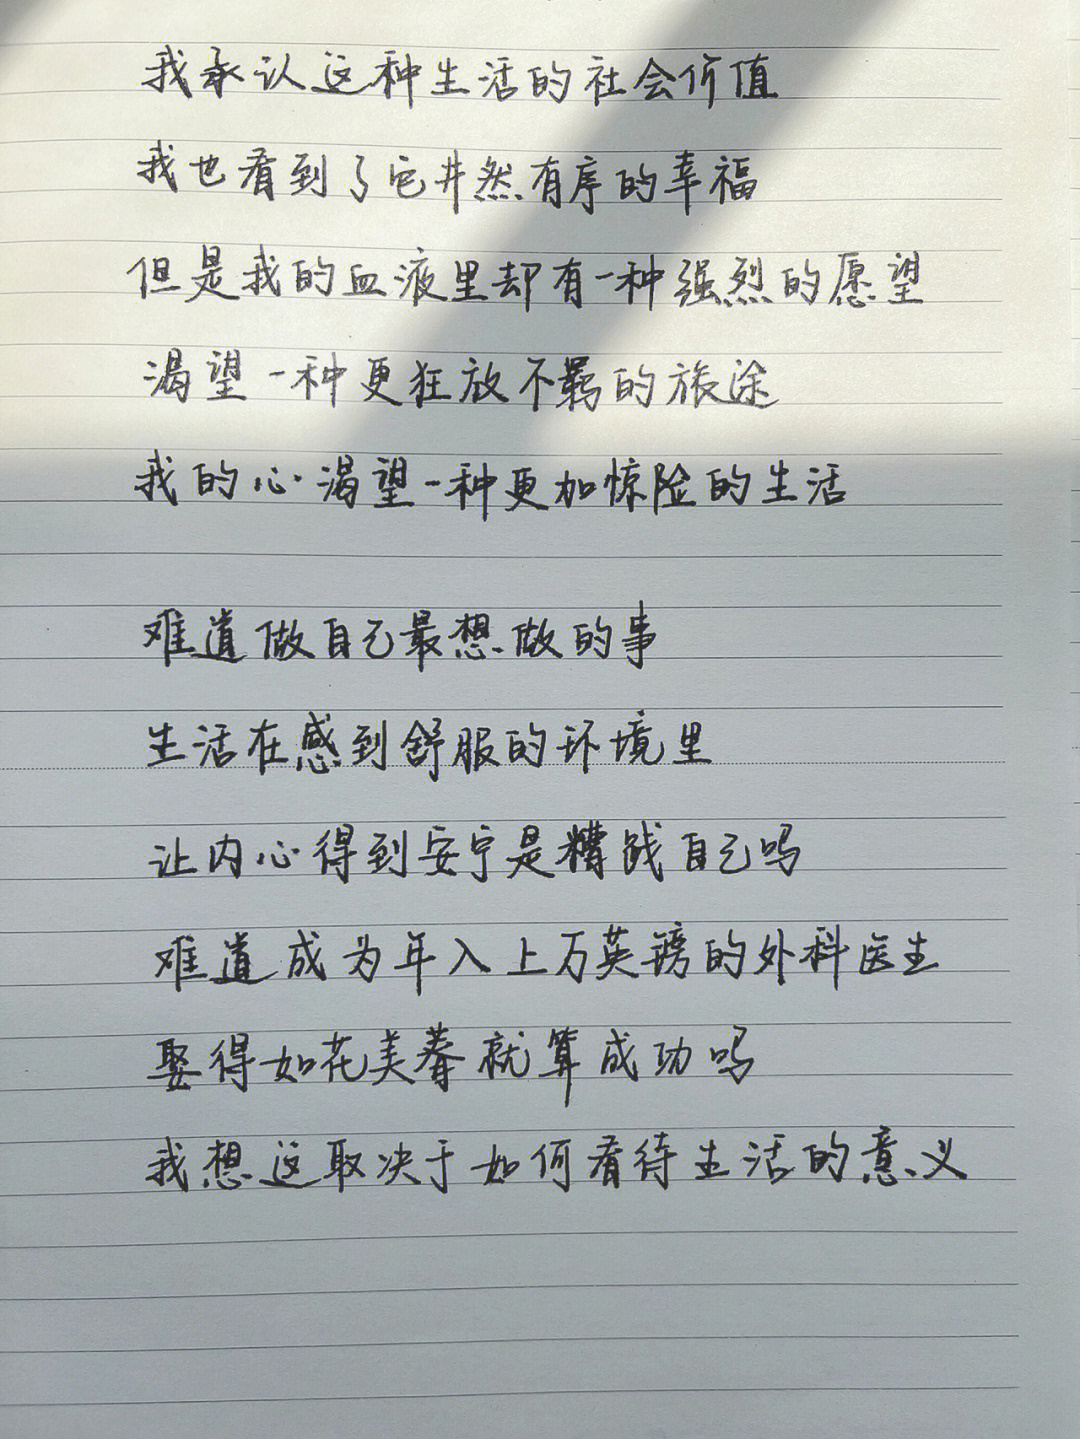 我承认这种生活的社会价值
我也看到了它井然有序的幸福
但是我的血液里却有一种强烈的愿望
渴望一种更狂放不羁的旅途
我的心渴望一种更加惊险的生活
难道做自己最想做的事
生活在感到舒服的环境里
让内心得到安宁是糟践自己吗
难道成为年入上万英镑的外科医生
娶得如花美眷就算成功吗
我想这取决于如何看待生活的意义